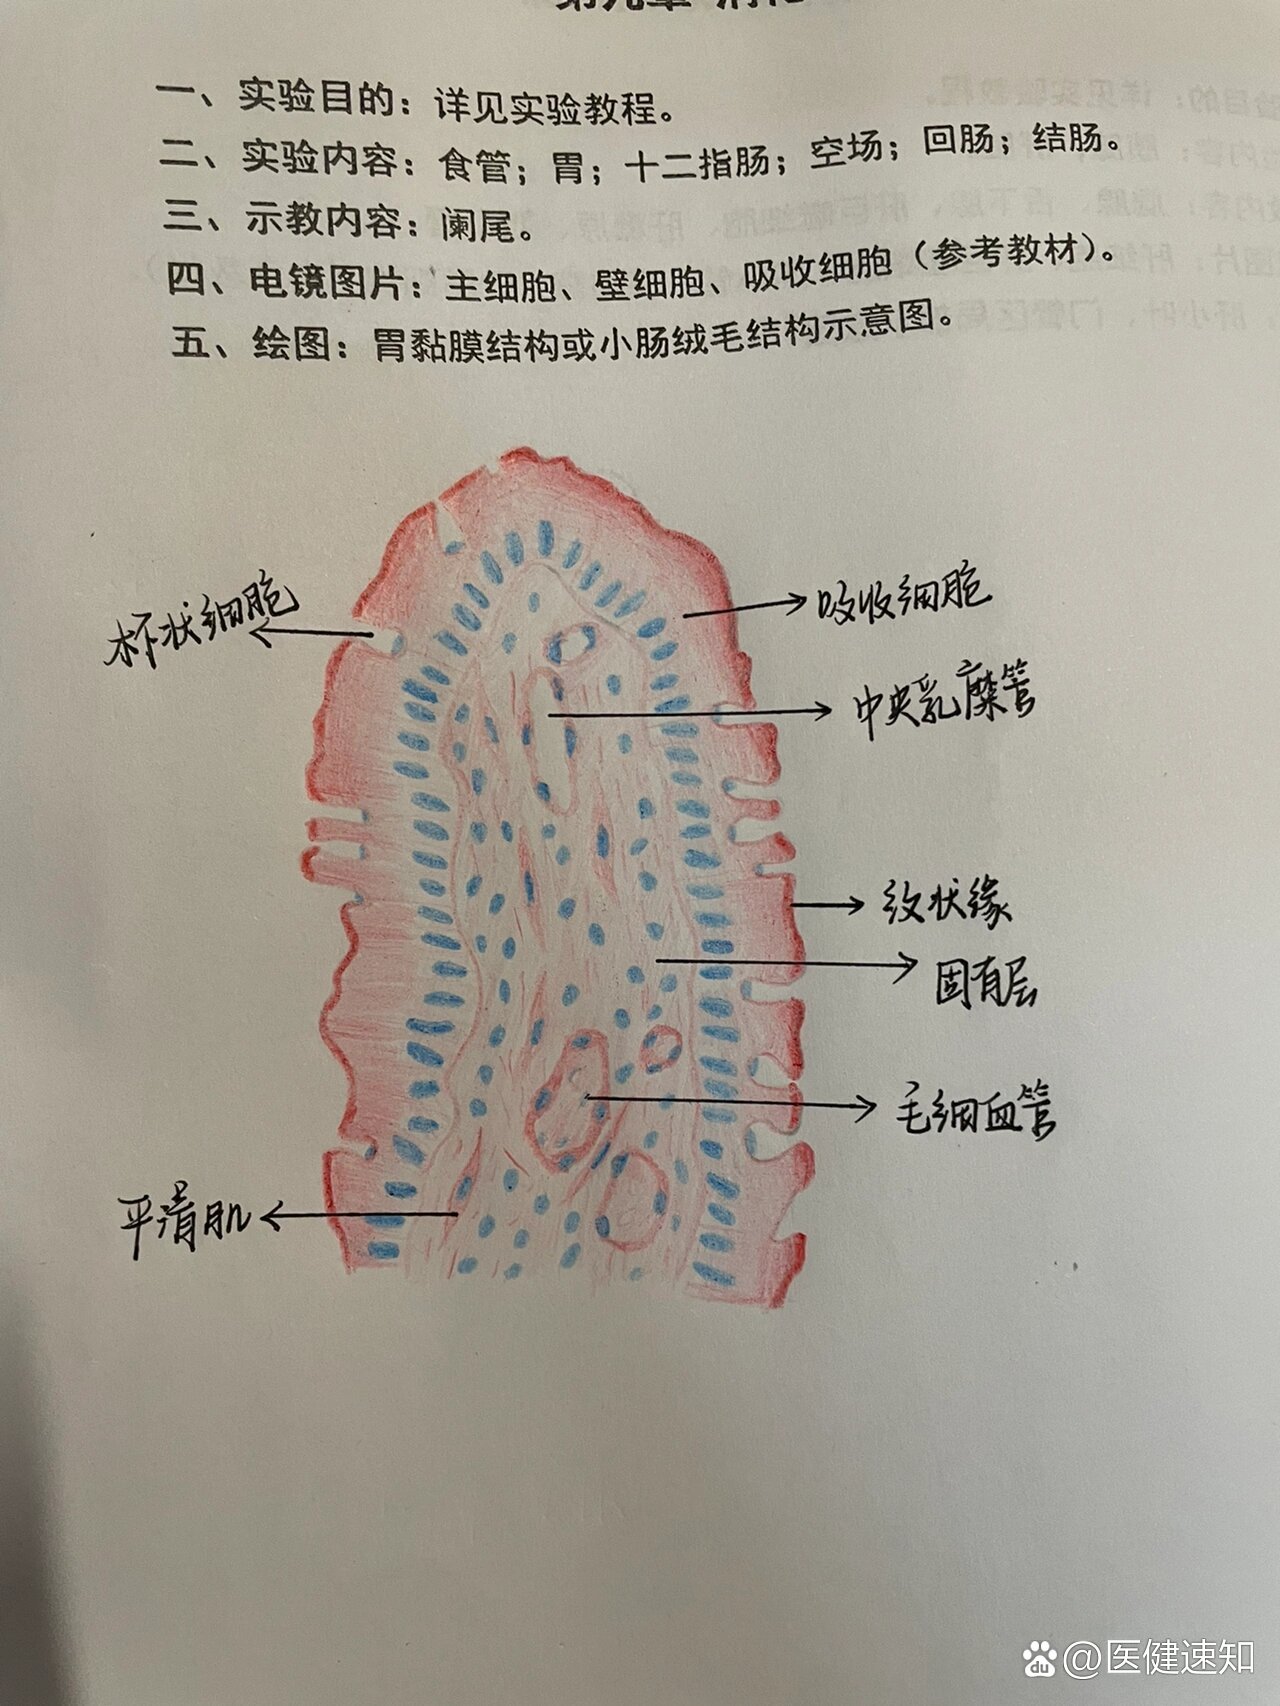 一、实验目的：详见实验教程。
二、实验内容：食管；胃；十二指肠；空场；回肠；结肠。
三、示教内容：阑尾。
四、电镜图片：主细胞、壁细胞、吸收细胞（参考教材）。
五、绘图：胃黏膜结构或小肠绒毛结构示意图。
杯状细胞
吸收细胞
中央乳糜管
纹状缘
固有层
毛细血管
平滑肌
du @医健速知